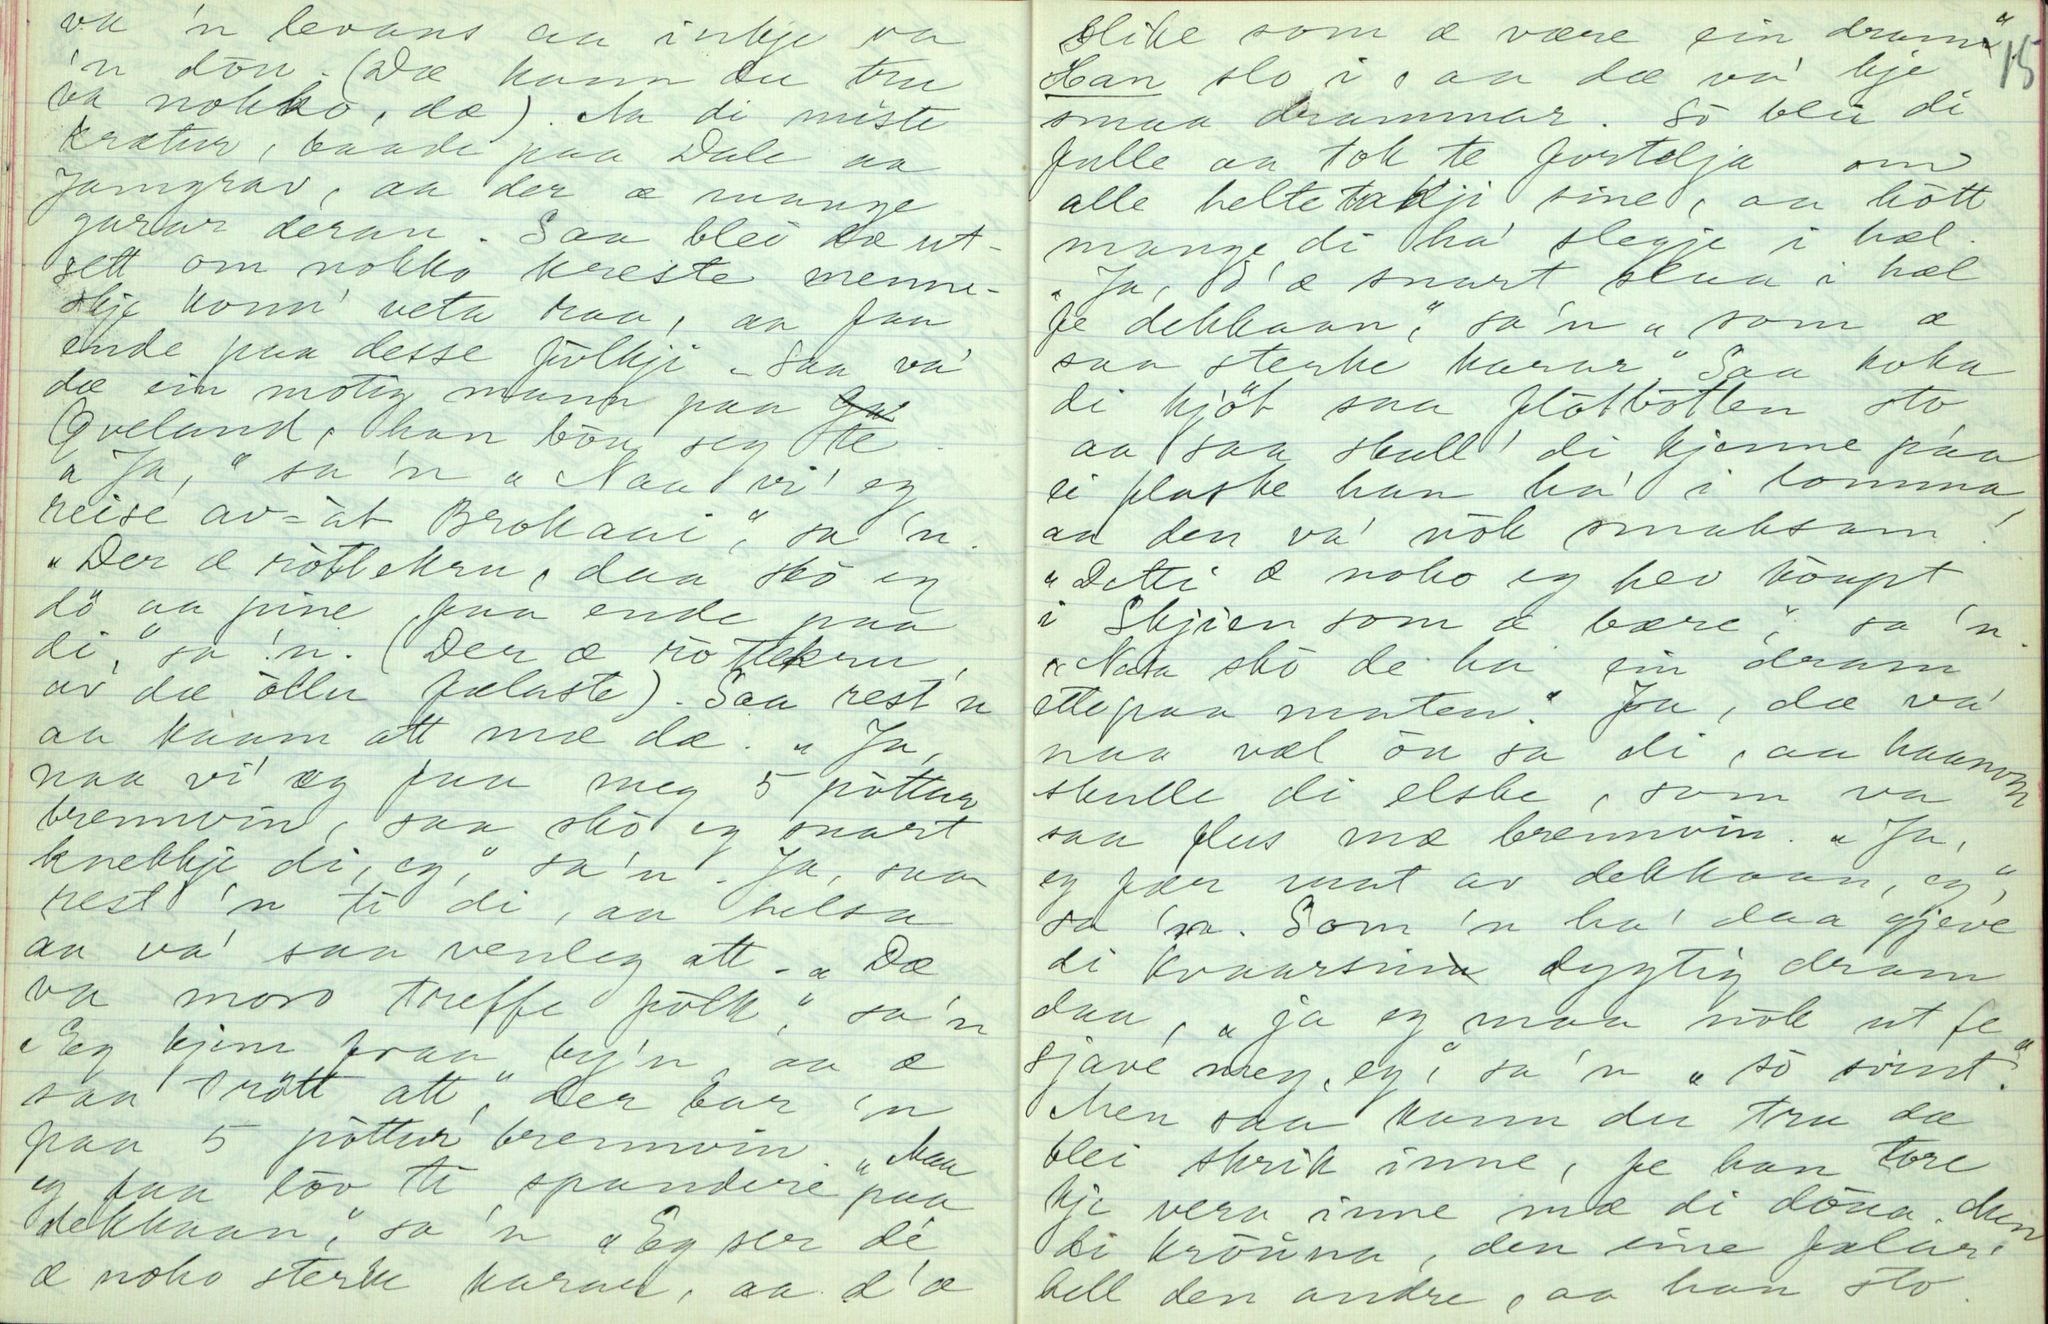 va 'n levans aa inkje va
'n dön. (Dæ kann du tru
va nokko, dæ). Aa di miste
krætur, baade paa Dale aa
Jamgrav, aa der æ mange
garar deran. Saa blei dæ ut-
sett om nokko kreste menne-
skje konn' veta raa, aa faa
ende paa desse folkji. Saa va'
dæ ein motig mann paa
Qveland, han böu seg te.
"Ja," sa 'n "Naa vi' eg
reise av-at Brokaui", sa 'n.
"Der æ röttekru, daa skö eg
dö aa pine faa ende paa
di," sa 'n. (Der æ röttekru,
av dæ öllu fælaste). Saa rest 'n
aa kaam att mæ dæ. "Ja,
naa vi' eg faa meg 5 pöttur
brennvin, saa skö eg snart
knekkje di, eg," sa 'n. Ja, saa
rest 'n ti di, aa helsa
aa va' saa venleg att. "Dæ
va moro treffe fölk," sa 'n
"Eg kjem fraa by'n, aa æ
saa trött att," der bar 'n
paa 5 pöttur brennvin. "Maa
eg faa löv te spandere paa
dekkaan," sa 'n "Eg ser de
æ noko sterke karar, aa d'æ
15
slike som æ være ein dram"
Han slo i, aa dæ va' kje
smaa drammar. Sö blei di
fulle aa tok te fortelja om
alle heltetakji sine, aa hött
mange di ha' slegje i hæl.
"Ja, d'æ snart slaa i hæl
fe dekkaan," sa 'n "som æ
saa sterke karar." Saa koka
di kjöt saa flotbotten sto
aa saa skull' di kjenne paa
ei flaske han ha' i lomma,
aa den va' nök smaksam!
"Detti æ noko eg hev köupt
i Skjien som æ bære," sa 'n.
"Naa skö de ha ein dram
ettepaa maten." Jaa, dæ va'
naa væl öu sa di, aa haanom
skulle di elske, som va
saa flus mæ brennvin. "Ja,
eg fær mat av dekkaan, eg",
sa 'n. Som 'n ha' daa gjeve
di kvaarsin dygtig dram
daa, "ja eg maa nök ut fe
gjave meg, eg," sa 'n "sö svint."
Men saa kann du tru dæ
blei skrik inne, fe han tore
kje vera inne mæ di döua. Men
di kröuna, den eine fælare
hell den andre, aa han sto